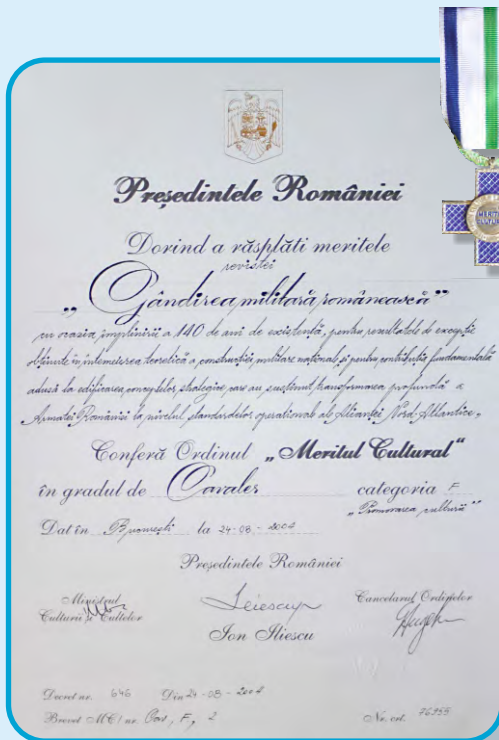 Președintele României
Dorind a răsplăti meritele
revistei
„Gândirea militară românească”
cu ocazia împlinirii a 140 de ani de existență, pentru rezultatele de excepție
obținute în întemeierea teoretică a construcției militare naționale și pentru contribuția fundamentală
adusă la edificarea conceptelor strategice care au susținut transformarea profundă a
Armatei României la nivelul standardelor operaționale ale Alianței Nord-Atlantice,
Conferă Ordinul „Meritul Cultural”
în gradul de Cavaler categoria F
„Promovarea culturii”
Dat în București la 24-08-2004
Președintele României
Ministrul Culturii și Cultelor
Cancelarul Ordinelor
Ion Iliescu
Decret nr. 646 Din 24-08-2004
Brevet MC/ nr. Cav, F, 2
Nr. crt. 76955